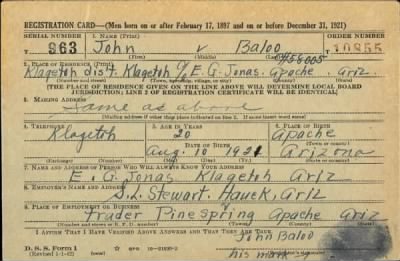 REGISTRATION CARD—(Men born on or after February 17, 1897 and on or before December 31, 1921)
SERIAL NUMBER 1. NAME (Print) ORDER NUMBER
963 John v Baloo 10855
(First) (Middle) (Last)
#58005
2. PLACE OF RESIDENCE (Print)
Klagetoh dist. Klagetoh c/o E. G. Jonas, Apache, Ariz.
(Number and street) (Town, township, village, or city) (County) (State)
[THE PLACE OF RESIDENCE GIVEN ON THE LINE ABOVE WILL DETERMINE LOCAL BOARD
JURISDICTION; LINE 2 OF REGISTRATION CERTIFICATE WILL BE IDENTICAL]
3. MAILING ADDRESS
Same as above
[Mailing address if other than place indicated on line 2. If same insert word same]
4. TELEPHONE 5. AGE IN YEARS 6. PLACE OF BIRTH
Klagetoh 20 Apache
DATE OF BIRTH (Town or county)
Aug. 10 1921 Arizona
(Exchange) (Number) (Mo.) (Day) (Yr.) (State or country)
7. NAME AND ADDRESS OF PERSON WHO WILL ALWAYS KNOW YOUR ADDRESS
E. G. Jonas Klagetoh Ariz
8. EMPLOYER'S NAME AND ADDRESS
S. L. Stewart, Ariz
9. PLACE OF EMPLOYMENT OR BUSINESS
Trader Pinespring Apache Ariz
(Number and street or R. F. D. number) (Town) (County) (State)
I AFFIRM THAT I HAVE VERIFIED ABOVE ANSWERS AND THAT THEY ARE TRUE.
John Baloo
D. S. S. Form 1
(Revised 1-1-42) (over)
his mark